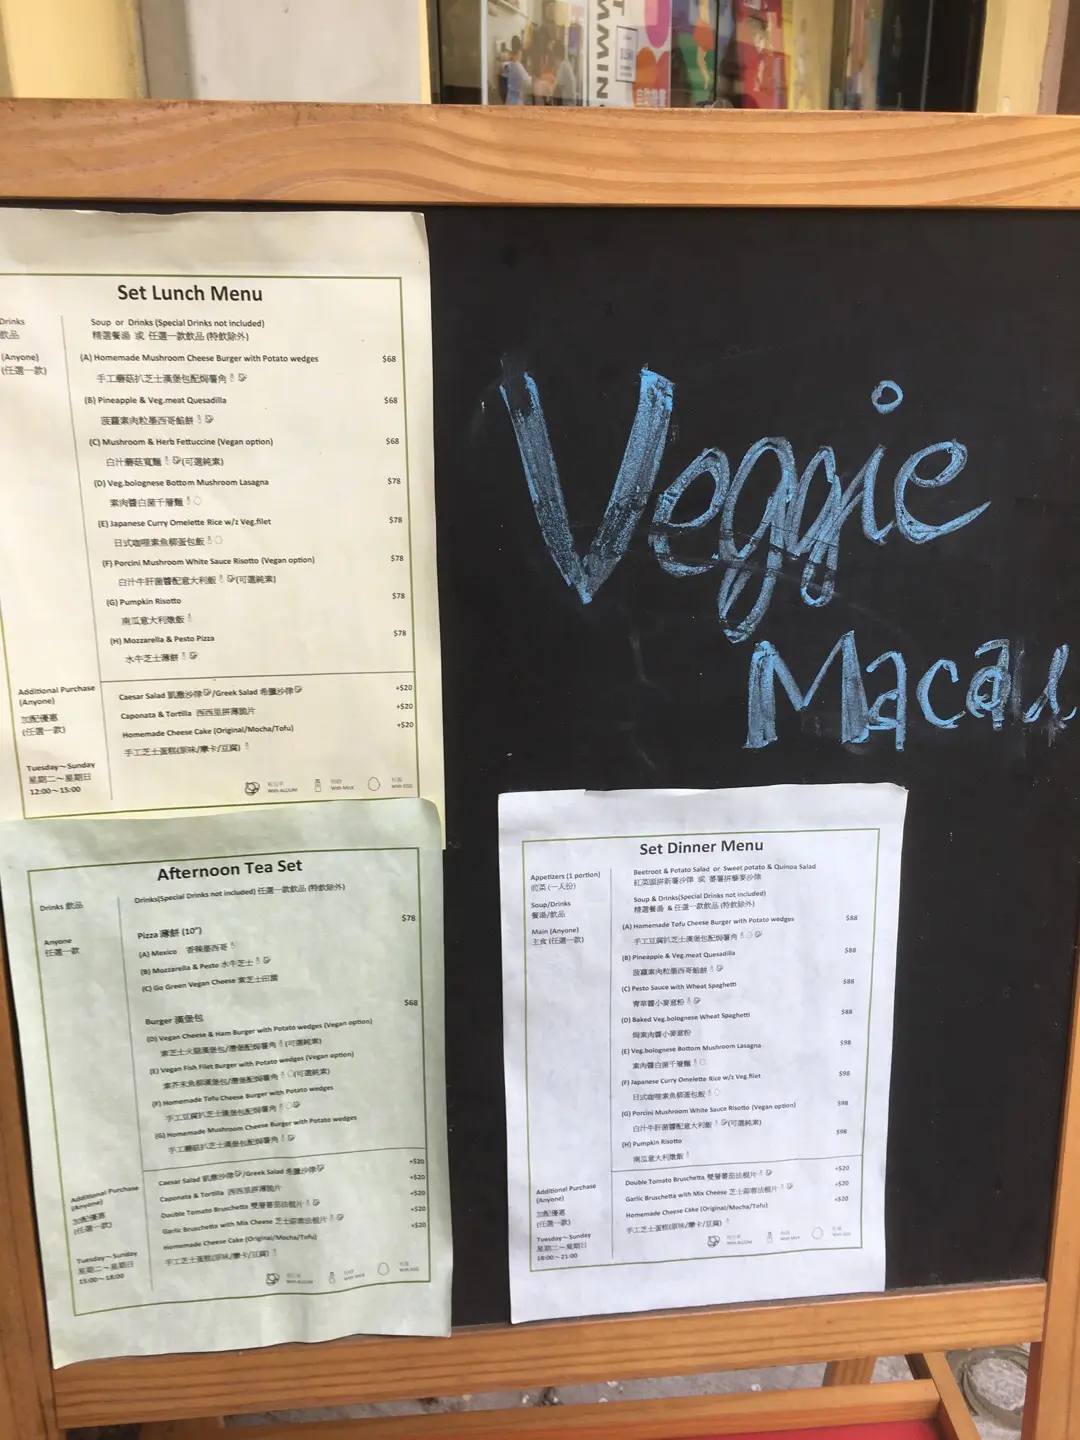 Set Lunch Menu
Drinks
飲品
Soup or Drinks (Special Drinks not included)
精選餐湯 或 任選一款飲品 (特飲除外)
(Anyone)
(任選一款)
(A) Homemade Mushroom Cheese Burger with Potato wedges $68
手工蘑菇扒芝士漢堡包配焗薯角
(B) Pineapple & Veg.meat Quesadilla $68
菠蘿素肉粒墨西哥餡餅
(C) Mushroom & Herb Fettuccine (Vegan option) $68
白汁蘑菇寬麵 (可選純素)
(D) Veg.bolognese Bottom Mushroom Lasagna $78
素肉醬白菌千層麵
(E) Japanese Curry Omelette Rice w/z Veg.filet $78
日式咖喱素魚柳蛋包飯
(F) Porcini Mushroom White Sauce Risotto (Vegan option) $78
白汁牛肝菌醬配意大利飯 (可選純素)
(G) Pumpkin Risotto $78
南瓜意大利燉飯
(H) Mozzarella & Pesto Pizza $78
水牛芝士薄餅
Additional Purchase
(Anyone)
加配優惠
(任選一款)
Caesar Salad 凱撒沙律/Greek Salad 希臘沙律 +$20
Caponata & Tortilla 西西里拼薄脆片 +$20
Homemade Cheese Cake (Original/Mocha/Tofu) +$20
手工芝士蛋糕(原味/摩卡/豆腐)
Tuesday~Sunday
星期二~星期日
12:00~15:00
With ALLIUM With MILK With EGG
Veggie
Macau
Afternoon Tea Set
Drinks 飲品
Drinks(Special Drinks not included) 任選一款飲品 (特飲除外)
Anyone
任選一款
Pizza 薄餅 (10") $78
(A) Mexico 香辣墨西哥
(B) Mozzarella & Pesto 水牛芝士
(C) Go Green Vegan Cheese 素芝士田園
Burger 漢堡包 $68
(D) Vegan Cheese & Ham Burger with Potato wedges (Vegan option)
素芝士火腿漢堡包/漕堡配焗薯角 (可選純素)
(E) Vegan Fish Filet Burger with Potato wedges (Vegan option)
素芥末魚柳漢堡包/漕堡配焗薯角 (可選純素)
(F) Homemade Tofu Cheese Burger with Potato wedges
手工豆腐扒芝士漢堡包配焗薯角
(G) Homemade Mushroom Cheese Burger with Potato wedges
手工蘑菇扒芝士漢堡包配焗薯角
Additional Purchase
(Anyone)
加配優惠
(任選一款)
Caesar Salad 凱撒沙律/Greek Salad 希臘沙律 +$20
Caponata & Tortilla 西西里拼薄脆片 +$20
Double Tomato Bruschetta 雙層蕃茄法棍片 +$20
Garlic Bruschetta with Mix Cheese 芝士蒜蓉法棍片 +$20
Homemade Cheese Cake (Original/Mocha/Tofu) +$20
手工芝士蛋糕(原味/摩卡/豆腐)
Tuesday~Sunday
星期二~星期日
15:00~18:00
With ALLIUM With MILK With EGG
Set Dinner Menu
Appetizers (1 portion)
前菜 (一人份)
Beetroot & Potato Salad or Sweet potato & Quinoa Salad
紅菜頭拼新薯沙律 或 蕃薯拼藜麥沙律
Soup/Drinks
餐湯/飲品
Soup & Drinks(Special Drinks not included)
精選餐湯 & 任選一款飲品 (特飲除外)
Main (Anyone)
主食 (任選一款)
(A) Homemade Tofu Cheese Burger with Potato wedges $88
手工豆腐扒芝士漢堡包配焗薯角
(B) Pineapple & Veg.meat Quesadilla $88
菠蘿素肉粒墨西哥餡餅
(C) Pesto Sauce with Wheat Spaghetti $88
青草醬小麥意粉
(D) Baked Veg.bolognese Wheat Spaghetti $88
焗素肉醬小麥意粉
(E) Veg.bolognese Bottom Mushroom Lasagna $98
素肉醬白菌千層麵
(F) Japanese Curry Omelette Rice w/z Veg.filet $98
日式咖喱素魚柳蛋包飯
(G) Porcini Mushroom White Sauce Risotto (Vegan option) $98
白汁牛肝菌醬配意大利飯 (可選純素)
(H) Pumpkin Risotto $98
南瓜意大利燉飯
Additional Purchase
(Anyone)
加配優惠
(任選一款)
Double Tomato Bruschetta 雙層蕃茄法棍片 +$20
Garlic Bruschetta with Mix Cheese 芝士蒜蓉法棍片 +$20
Homemade Cheese Cake (Original/Mocha/Tofu) +$20
手工芝士蛋糕(原味/摩卡/豆腐)
Tuesday~Sunday
星期二~星期日
18:00~21:00
With ALLIUM With MILK With EGG